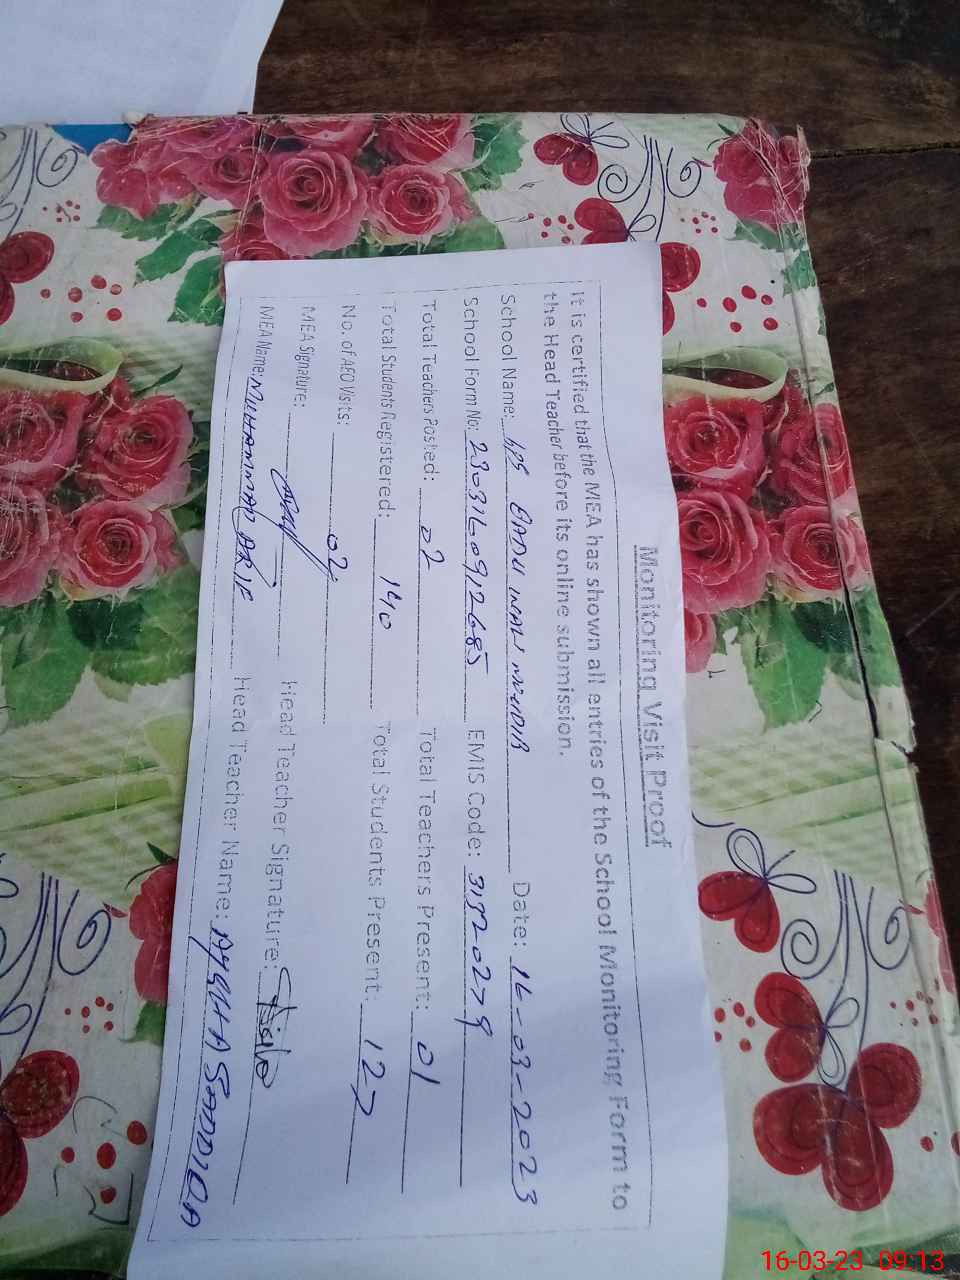 Monitoring Visit Proof
It is certified that the MEA has shown all entries of the School Monitoring Form to
the Head Teacher before its online submission.
School Name: GPS Date: 16-03-2023
School Form No: 2303160912685 EMIS Code: 31820279
Total Teachers Posted: 02 Total Teachers Present: 01
Total Students Registered: 140 Total Students Present: 127
No. of AEO Visits: 02
MEA Signature: Head Teacher Signature:
MEA Name: MUHAMMAD ARIF Head Teacher Name: AYSHA SADDIQA
16-03-23 09:13